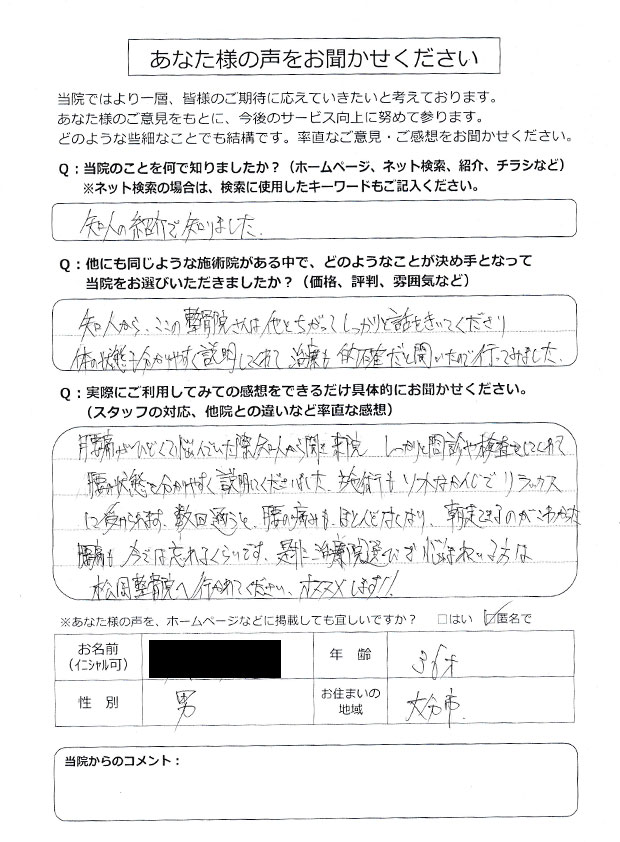 あなた様の声をお聞かせください
当院ではより一層、皆様のご期待に応えていきたいと考えております。
あなた様のご意見をもとに、今後のサービス向上に努めて参ります。
どのような些細なことでも結構です。率直なご意見・ご感想をお聞かせください。
Q：当院のことを何で知りましたか？（ホームページ、ネット検索、紹介、チラシなど）
※ネット検索の場合は、検索に使用したキーワードもご記入ください。
知人の紹介で知りました。
Q：他にも同じような施術院がある中で、どのようなことが決め手となって
当院をお選びいただきましたか？（価格、評判、雰囲気など）
知人から、ここの整骨院さんは他とちがってしっかりと話をきいてくださり
体の状態を分かりやすく説明してくれて治療も的確だと聞いたので行ってみました。
Q：実際にご利用してみての感想をできるだけ具体的にお聞かせください。
（スタッフの対応、他院との違いなど率直な感想）
腰痛がひどくて悩んでいた際知人から聞き来院 しっかりと問診や検査をしてくれて
腰の状態を分かりやすく説明してくださいました。施術もソフトなかんじでリラックス
して受けられます。数回通うと、腰の痛みも、ほとんどなくなり、朝起きるのがこわかった
腰痛も今では忘れるくらいです。是非治療院選びで悩まれている方は
松岡整骨院へ行かれてください、オススメします!!
※あなた様の声を、ホームページなどに掲載しても宜しいですか？ □はい ☑匿名で
お名前 年齢 36才
（イニシャル可）
性別 男 お住まいの 大分市
地域
当院からのコメント：